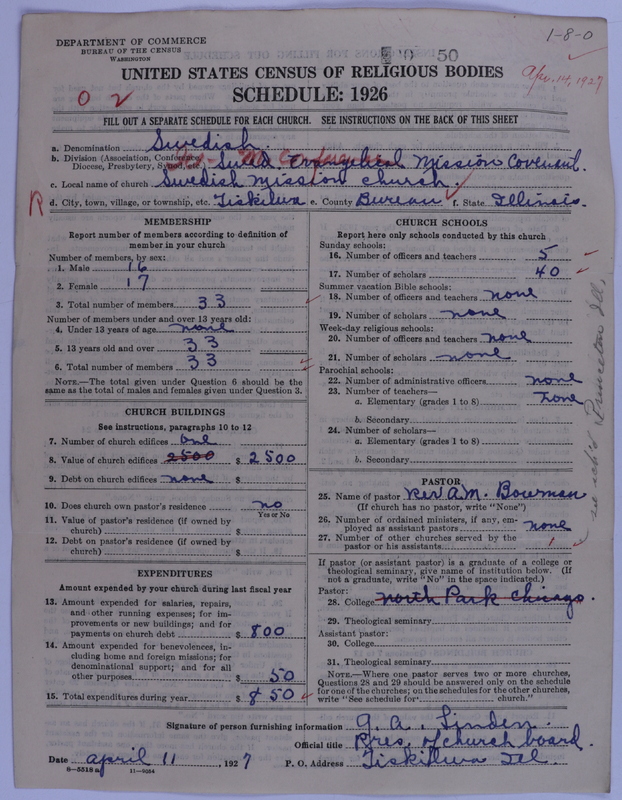 1-8-0
DEPARTMENT OF COMMERCE
BUREAU OF THE CENSUS
WASHINGTON
50
UNITED STATES CENSUS OF RELIGIOUS BODIES
Apr. 14, 1927
SCHEDULE: 1926
FILL OUT A SEPARATE SCHEDULE FOR EACH CHURCH. SEE INSTRUCTIONS ON THE BACK OF THIS SHEET
a. Denomination Swedish.
b. Division (Association, Conference, Diocese, Presbytery, Synod, etc.) Evangelical Mission Covenant.
c. Local name of church Swedish Mission Church.
d. City, town, village, or township, etc. Tiskilwa e. County Bureau f. State Illinois.
MEMBERSHIP
Report number of members according to definition of member in your church
Number of members, by sex:
1. Male 16
2. Female 17
3. Total number of members 33
Number of members under and over 13 years old:
4. Under 13 years of age none
5. 13 years old and over 33
6. Total number of members 33
NOTE.—The total given under Question 6 should be the same as the total of males and females given under Question 3.
CHURCH BUILDINGS
See instructions, paragraphs 10 to 12
7. Number of church edifices one
8. Value of church edifices 2500 $ 2500
9. Debt on church edifices none $
10. Does church own pastor's residence no
Yes or No
11. Value of pastor's residence (if owned by church) $
12. Debt on pastor's residence (if owned by church) $
EXPENDITURES
Amount expended by your church during last fiscal year
13. Amount expended for salaries, repairs, and other running expenses; for improvements or new buildings; and for payments on church debt $ 800
14. Amount expended for benevolences, including home and foreign missions; for denominational support; and for all other purposes $ 50
15. Total expenditures during year $ 850
CHURCH SCHOOLS
Report here only schools conducted by this church
Sunday schools:
16. Number of officers and teachers 5
17. Number of scholars 40
Summer vacation Bible schools:
18. Number of officers and teachers none
19. Number of scholars none
Week-day religious schools:
20. Number of officers and teachers none
21. Number of scholars none
Parochial schools:
22. Number of administrative officers none
23. Number of teachers—
a. Elementary (grades 1 to 8) none
b. Secondary
24. Number of scholars—
a. Elementary (grades 1 to 8)
b. Secondary
PASTOR
25. Name of pastor Rev A.M. Bowman
(If church has no pastor, write "None")
26. Number of ordained ministers, if any, employed as assistant pastors none
27. Number of other churches served by the pastor or his assistants 1
If pastor (or assistant pastor) is a graduate of a college or theological seminary, give name of institution below. (If not a graduate, write "No" in the space indicated.)
Pastor:
28. College North Park Chicago.
29. Theological seminary
Assistant pastor:
30. College
31. Theological seminary
NOTE.—Where one pastor serves two or more churches, Questions 28 and 29 should be answered only on the schedule for one of the churches; on the schedules for the other churches, write "See schedule for church."
Princeton Ill.
Signature of person furnishing information G. A. Linden.
Official title Pres. of church board.
Date April 11, 1927 P. O. Address Tiskilwa Ill.
8—5518 a 11—9064